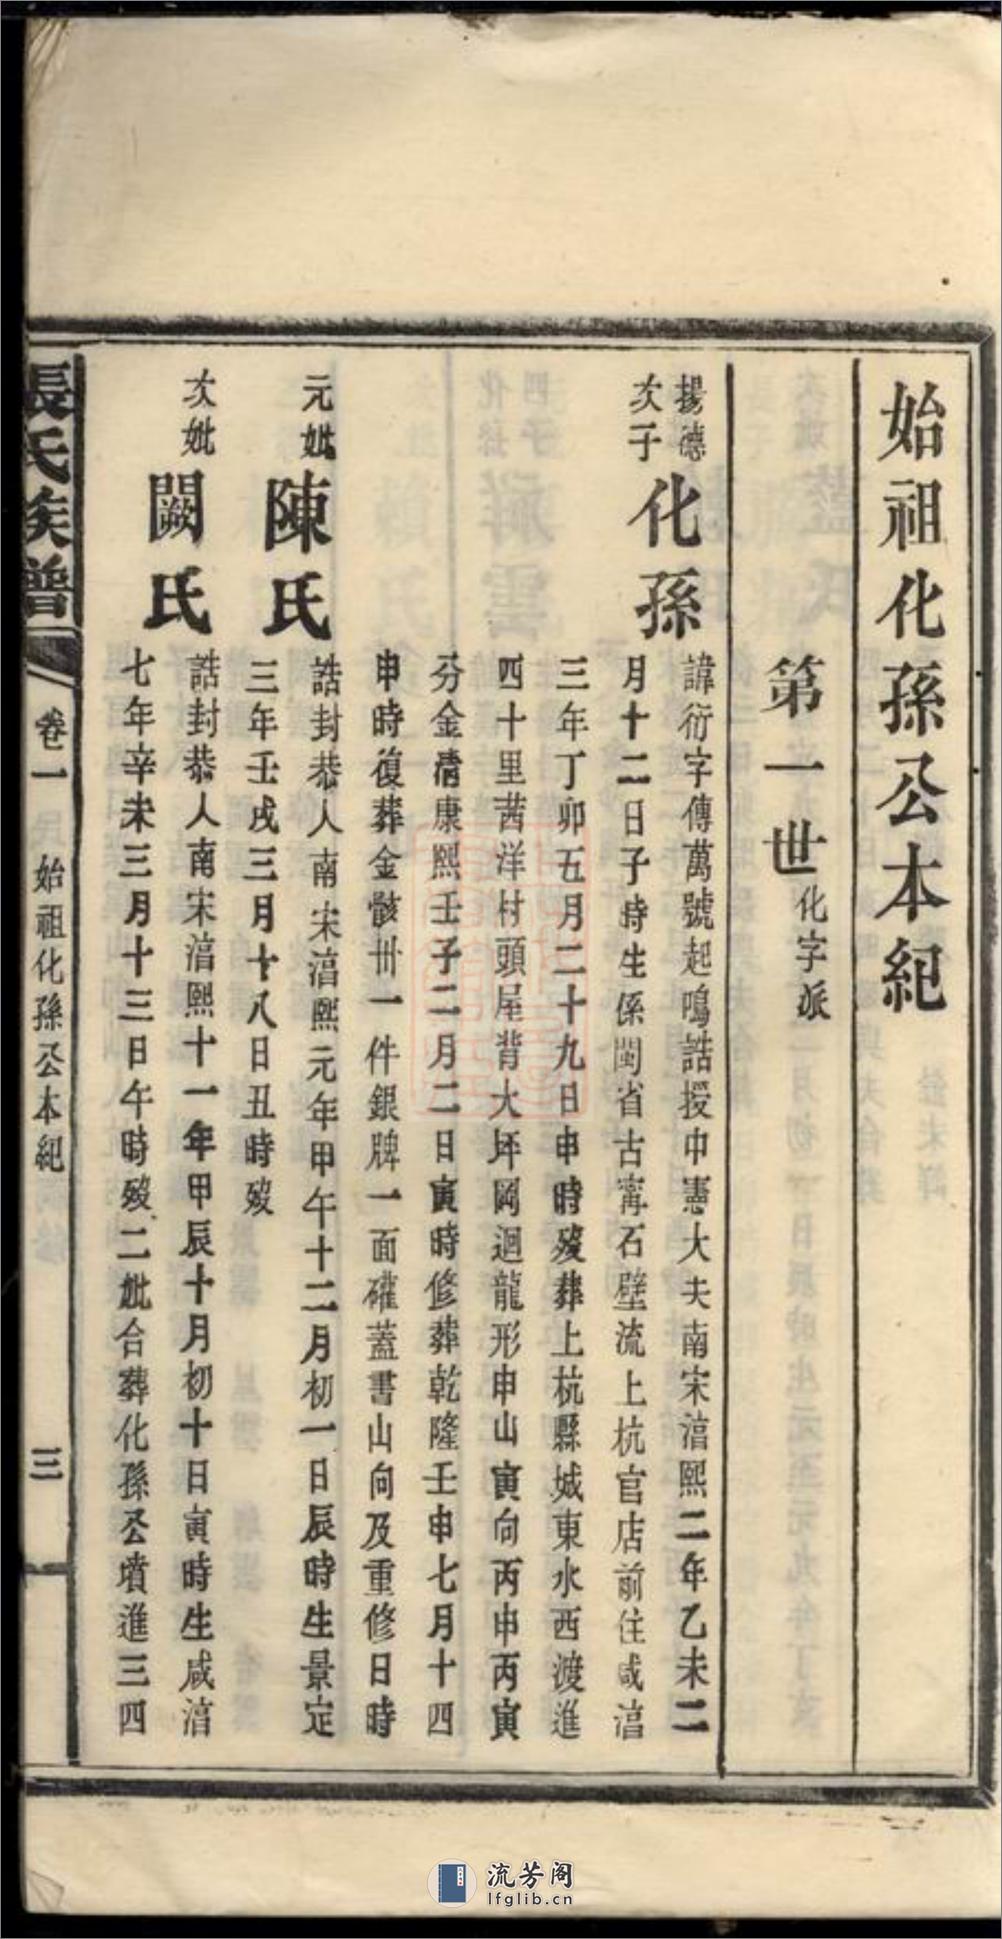 始祖化孫公本紀
第一世 化字派
揚德
次子
化孫
諱衍字傳萬號起鳴誥授中憲大夫南宋淳熙二年乙未二
月十二日子時生係閩省古寗石壁流上杭官店前住咸淳
三年丁卯五月二十九日申時歿葬上杭縣城東水西渡進
四十里茜洋村頭屋背大坪岡迴龍形申山寅向丙申丙寅
分金清康熙壬子二月二日寅時修葬乾隆壬申七月十四
申時復葬金骸卅一件銀牌一面確蓋書山向及重修日時
元妣 陳氏
誥封恭人南宋淳熙元年甲午十二月初一日辰時生景定
三年壬戌三月十八日丑時歿
次妣 闕氏
誥封恭人南宋淳熙十一年甲辰十月初十日寅時生咸淳
七年辛未三月十三日午時歿二妣合葬化孫公墳進三四
張氏族譜
卷一
始祖化孫公本紀
三
流芳阁
lfglib.cn